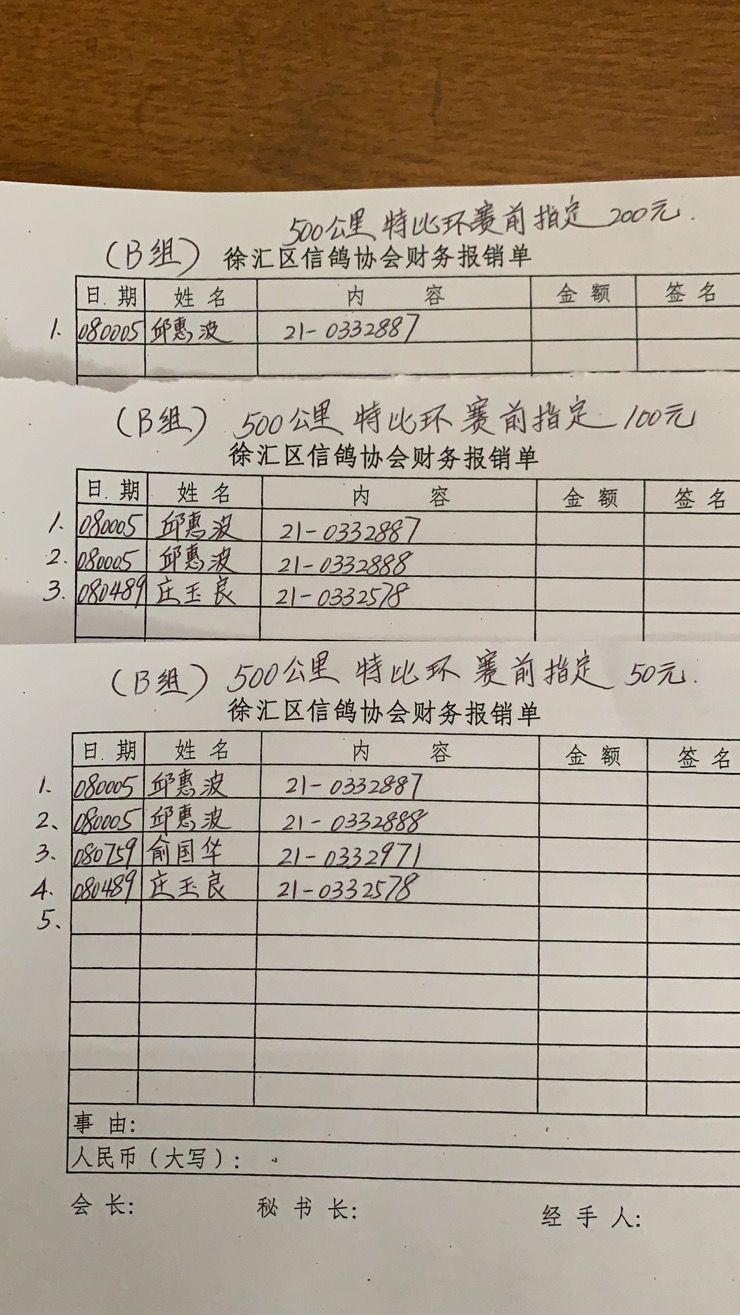 500公里 特比环赛前指定 200元.
(B组) 徐汇区信鸽协会财务报销单
日 期 姓 名 内 容 金 额 签 名
1. 080005 邱惠波 21-0332887
(B组) 500公里 特比环 赛前指定 100元
徐汇区信鸽协会财务报销单
日 期 姓 名 内 容 金 额 签 名
1. 080005 邱惠波 21-0332887
2. 080005 邱惠波 21-0332888
3. 080489 庄玉良 21-0332578
(B组) 500公里 特比环 赛前指定 50元.
徐汇区信鸽协会财务报销单
日 期 姓 名 内 容 金 额 签 名
1. 080005 邱惠波 21-0332887
2、 080005 邱惠波 21-0332888
3. 080759 俞国华 21-0332971
4. 080489 庄玉良 21-0332578
5、
事 由:
人民币(大写):
会 长: 秘 书 长: 经 手 人: